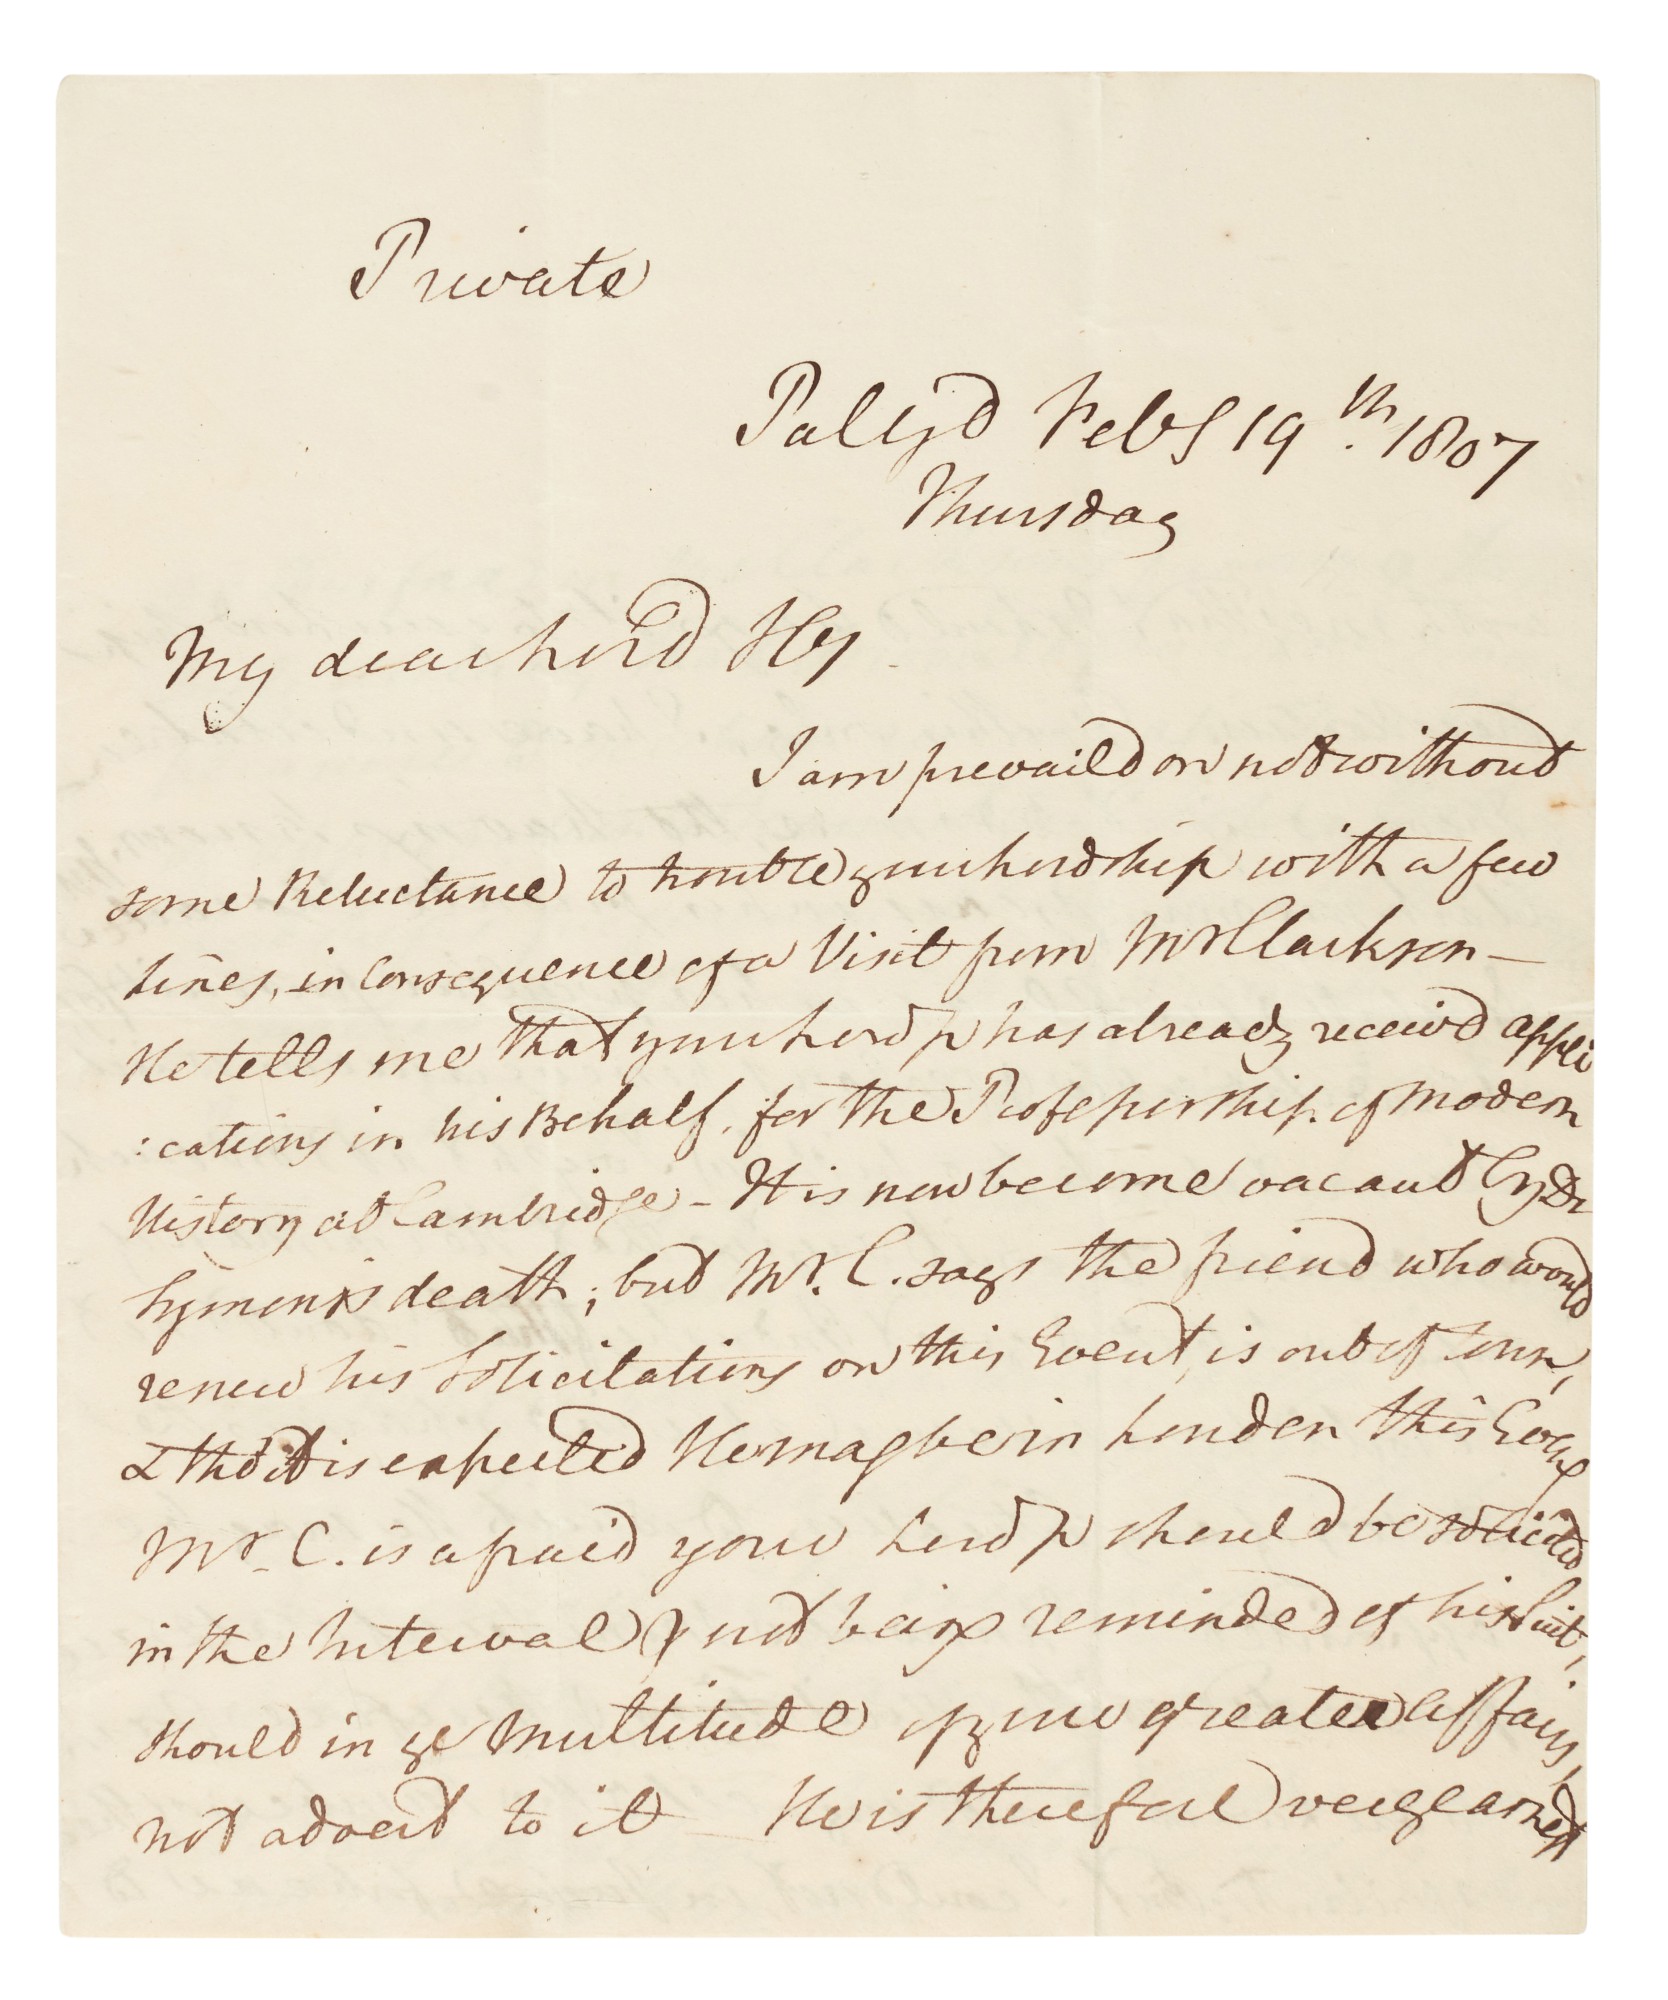 Private
Pal Yd Feby 19th. 1807
Thursday
My dear Lord Hy
I am prevaild on not without
some Reluctance to trouble your Lordship with a few
Lines, in Consequence of a Visit from Mr Clarkson —
He tells me that your Lordp has already receiv'd appli
:cations in his Behalf, for the Professorship of Modern
History at Cambridge - It is now become vacant by Dr
Symons's death; but Mr. C. says the friend who would
renew his Solicitations on this Event, is out of Town,
& tho' it is expected He may be in London this Eveng
Mr. C. is afraid your Lordp should be solicited
in the Interval, & not being reminded of his Suit,
should in ye Multitude of your greater Affairs,
not advert to it He is therefore very earnest